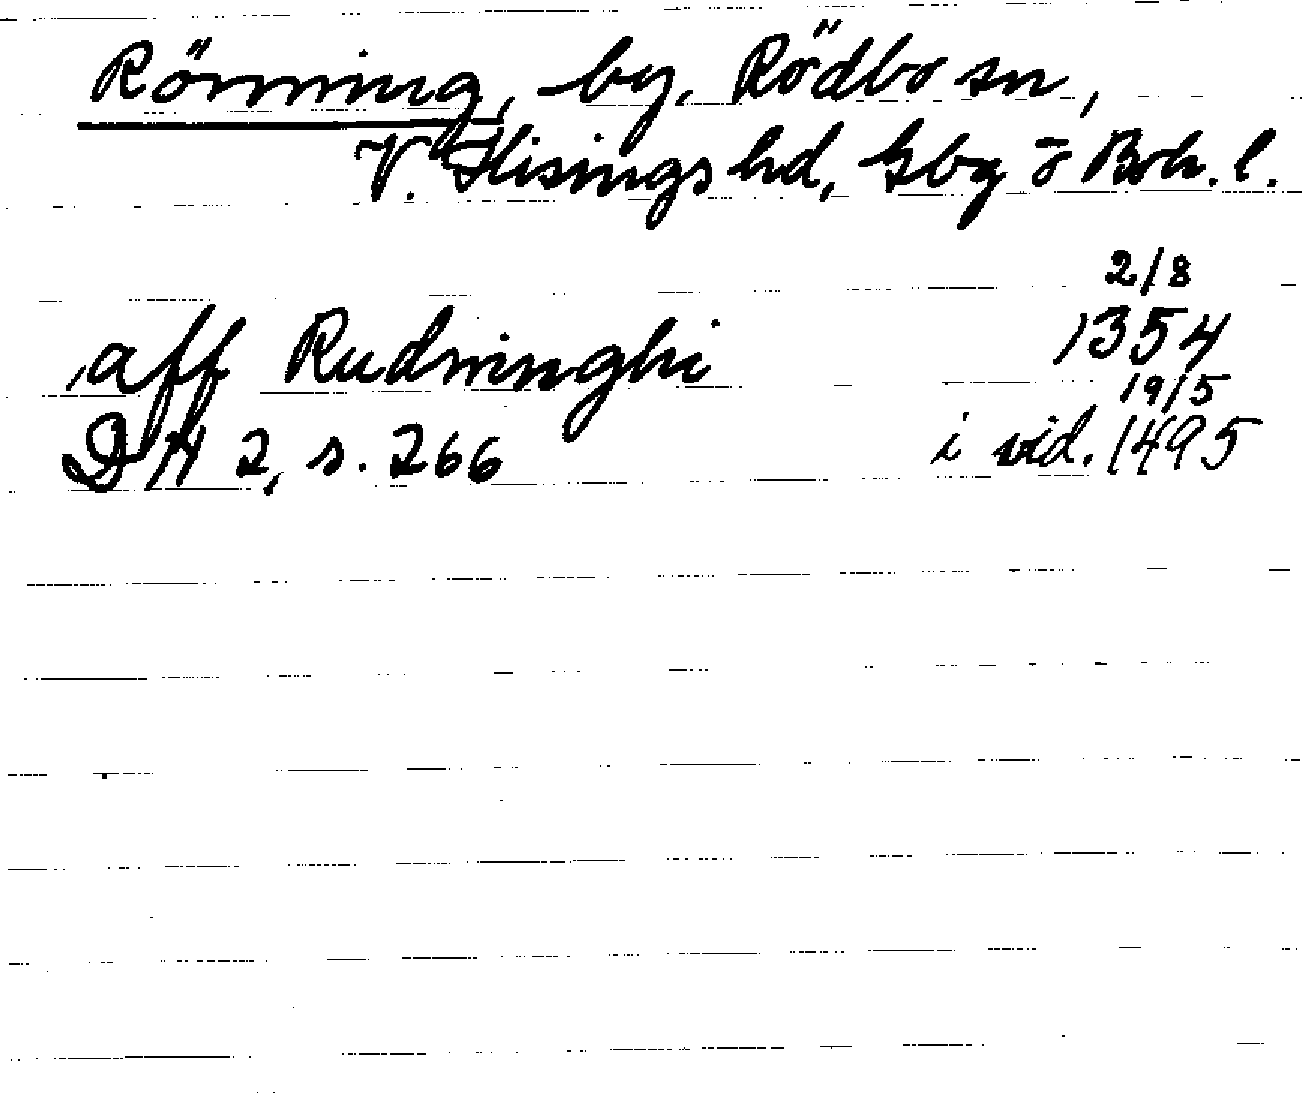 Rörning, by, Rödbo sn,
V. Hisings hd, Gbg o Boh. l.
2/8
,aff Rudninghi 1354
19/5
DN 2, s. 266 i vid. 1495